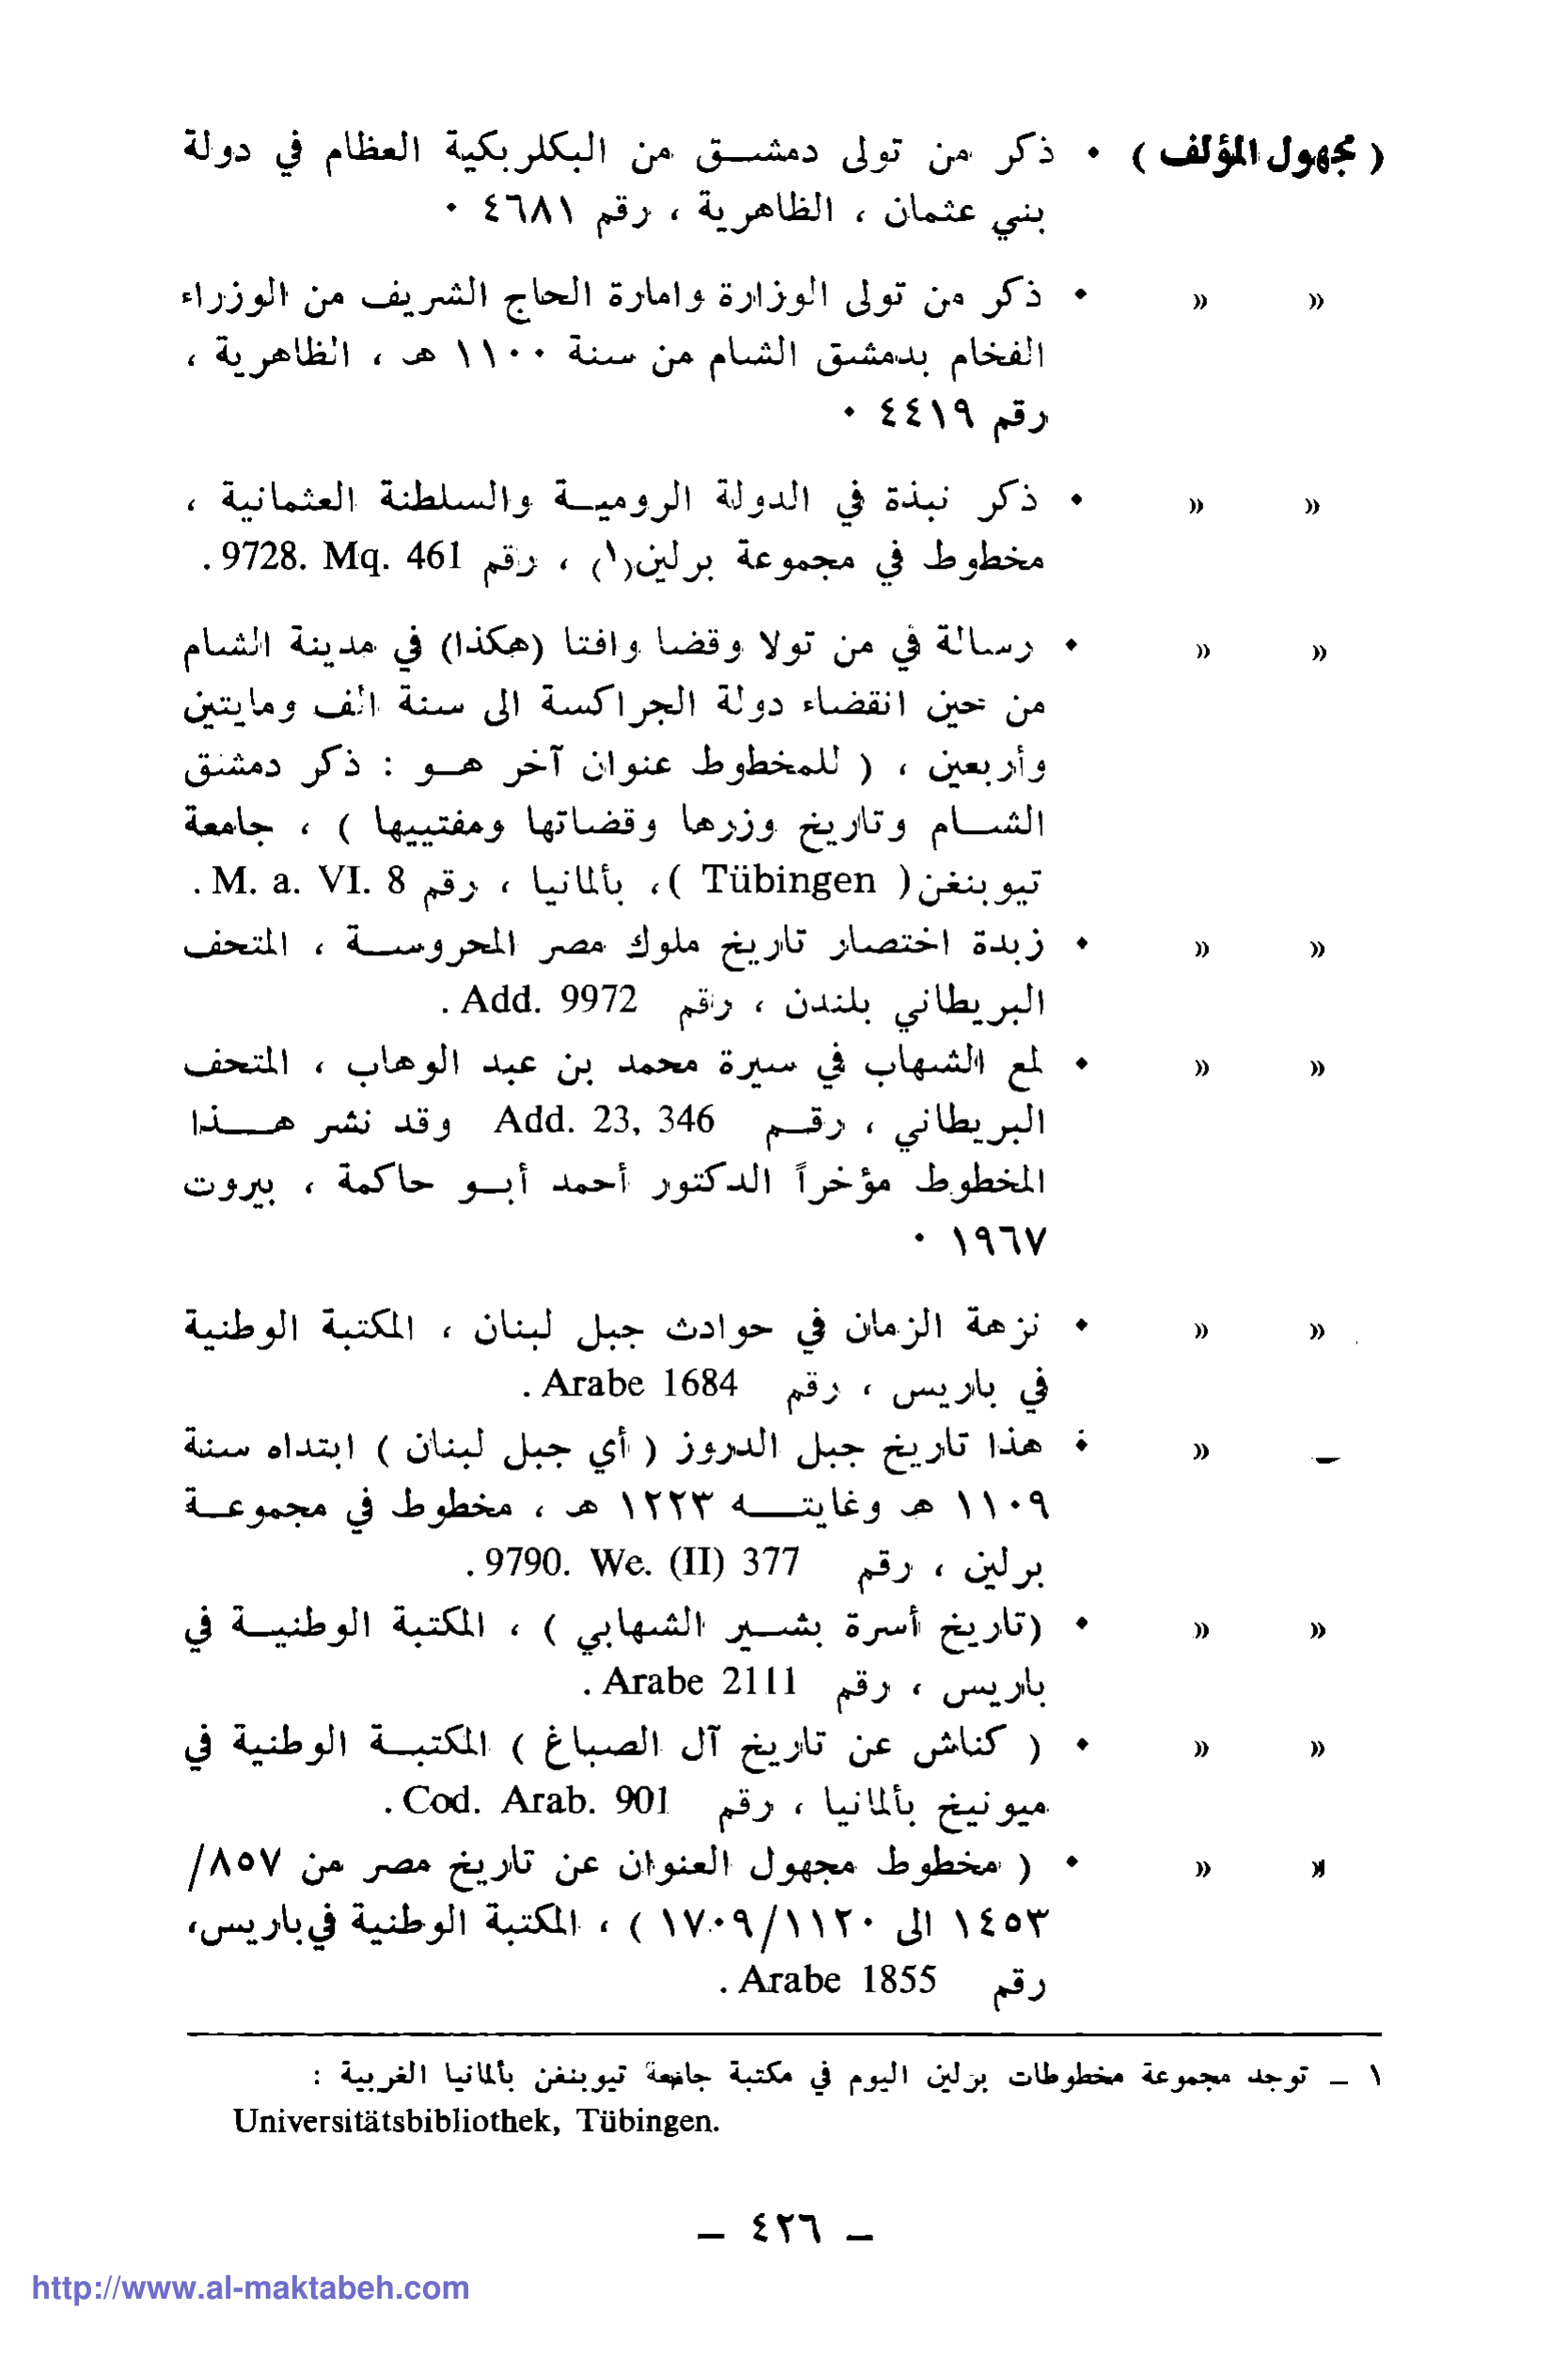 ( مجهول المؤلف ) • ذكر من تولى دمشـــق من البكلربكية العظام في دولة
بني عثمان ، الظاهرية ، رقم ٤٦٨١ •
» » • ذكر من تولى الوزارة وامارة الحاج الشريف من الوزراء
الفخام بدمشق الشام من سنة ١١٠٠ هـ ، الظاهرية ،
رقم ٤٤١٩ •
» » • ذكر نبذة في الدولة الروميـــة والسلطنة العثمانية ،
مخطوط في مجموعة برلين(١) ، رقم 9728. Mq. 461 .
» » • رسالة في من تولا وقضا وافتا (هكذا) في مدينة الشام
من حين انقضاء دولة الجراكسة الى سنة الف ومايتين
وأربعين ، ( للمخطوط عنوان آخر هـــو : ذكر دمشق
الشـــام وتاريخ وزرها وقضاتها ومفتييها ) ، جامعة
تيوبنغن( Tübingen )، بألمانيا ، رقم M. a. VI. 8 .
» » • زبدة اختصار تاريخ ملوك مصر المحروســـة ، المتحف
البريطاني بلندن ، رقم Add. 9972 .
» » • لمع الشهاب في سيرة محمد بن عبد الوهاب ، المتحف
البريطاني ، رقـــم Add. 23, 346 وقد نشر هـــذا
المخطوط مؤخراً الدكتور أحمد أبـــو حاكمة ، بيروت
١٩٦٧ •
» » • نزهة الزمان في حوادث جبل لبنان ، المكتبة الوطنية
في باريس ، رقم Arabe 1684 .
_ » • هذا تاريخ جبل الدروز ( أي جبل لبنان ) ابتداه سنة
١١٠٩ هـ وغايتـــه ١٢٢٣ هـ ، مخطوط في مجموعـــة
برلين ، رقم 9790. We. (II) 377 .
» » • (تاريخ أسرة بشـــير الشهابي ) ، المكتبة الوطنيـــة في
باريس ، رقم Arabe 2111 .
» » • ( كناش عن تاريخ آل الصباغ ) المكتبـــة الوطنية في
ميونيخ بألمانيا ، رقم Cod. Arab. 901 .
» » • ( مخطوط مجهول العنوان عن تاريخ مصر من ٨٥٧/
١٤٥٣ الى ١٧٠٩/١١٢٠ ) ، المكتبة الوطنية في باريس،
رقم Arabe 1855 .
١ – توجد مجموعة مخطوطات برلين اليوم في مكتبة جامعة تيوبنغن بألمانيا الغربية :
Universitätsbibliothek, Tübingen.
– ٤٢٦ –
http://www.al-maktabeh.com